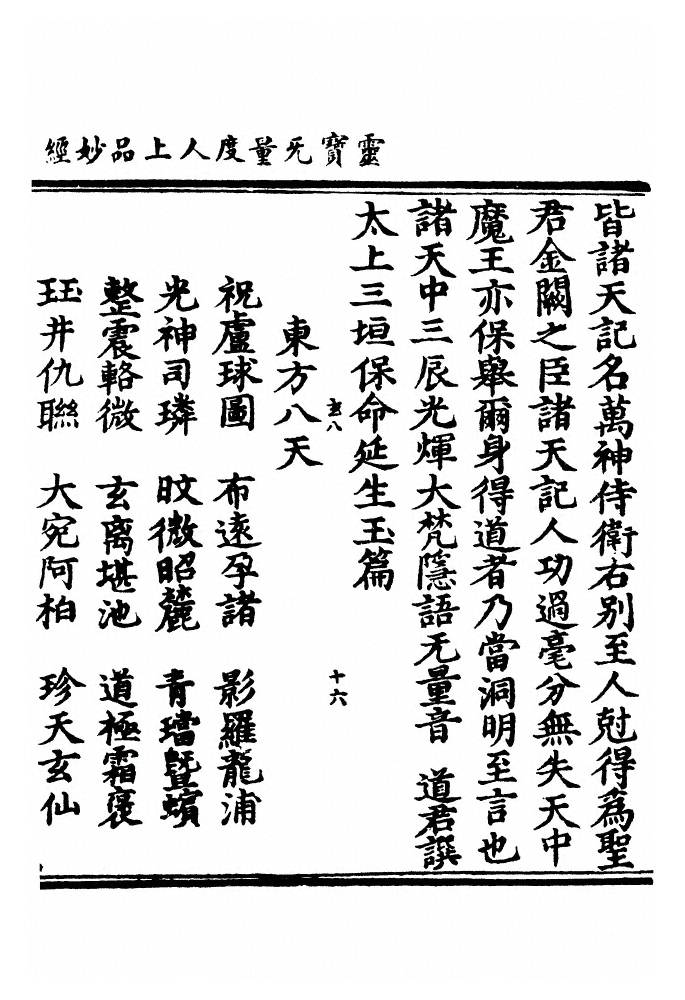 靈寶无量度人上品妙經
皆諸天記名萬神侍衛右別至人尅得為聖
君金闕之臣諸天記人功過毫分無失天中
魔王亦保舉爾身得道者乃當洞明至言也
諸天中三辰光煇大梵隱語无量音 道君譔
太上三垣保命延生玉篇
玄八 十六
東方八天
祝盧球圖 布遠孕諸 影羅龍浦
光神司璘 旼微昭麓 青璫暨蠙
整震輅微 玄离堪池 道極霜褒
玨井仇聯 大宛阿柏 珍天玄仙